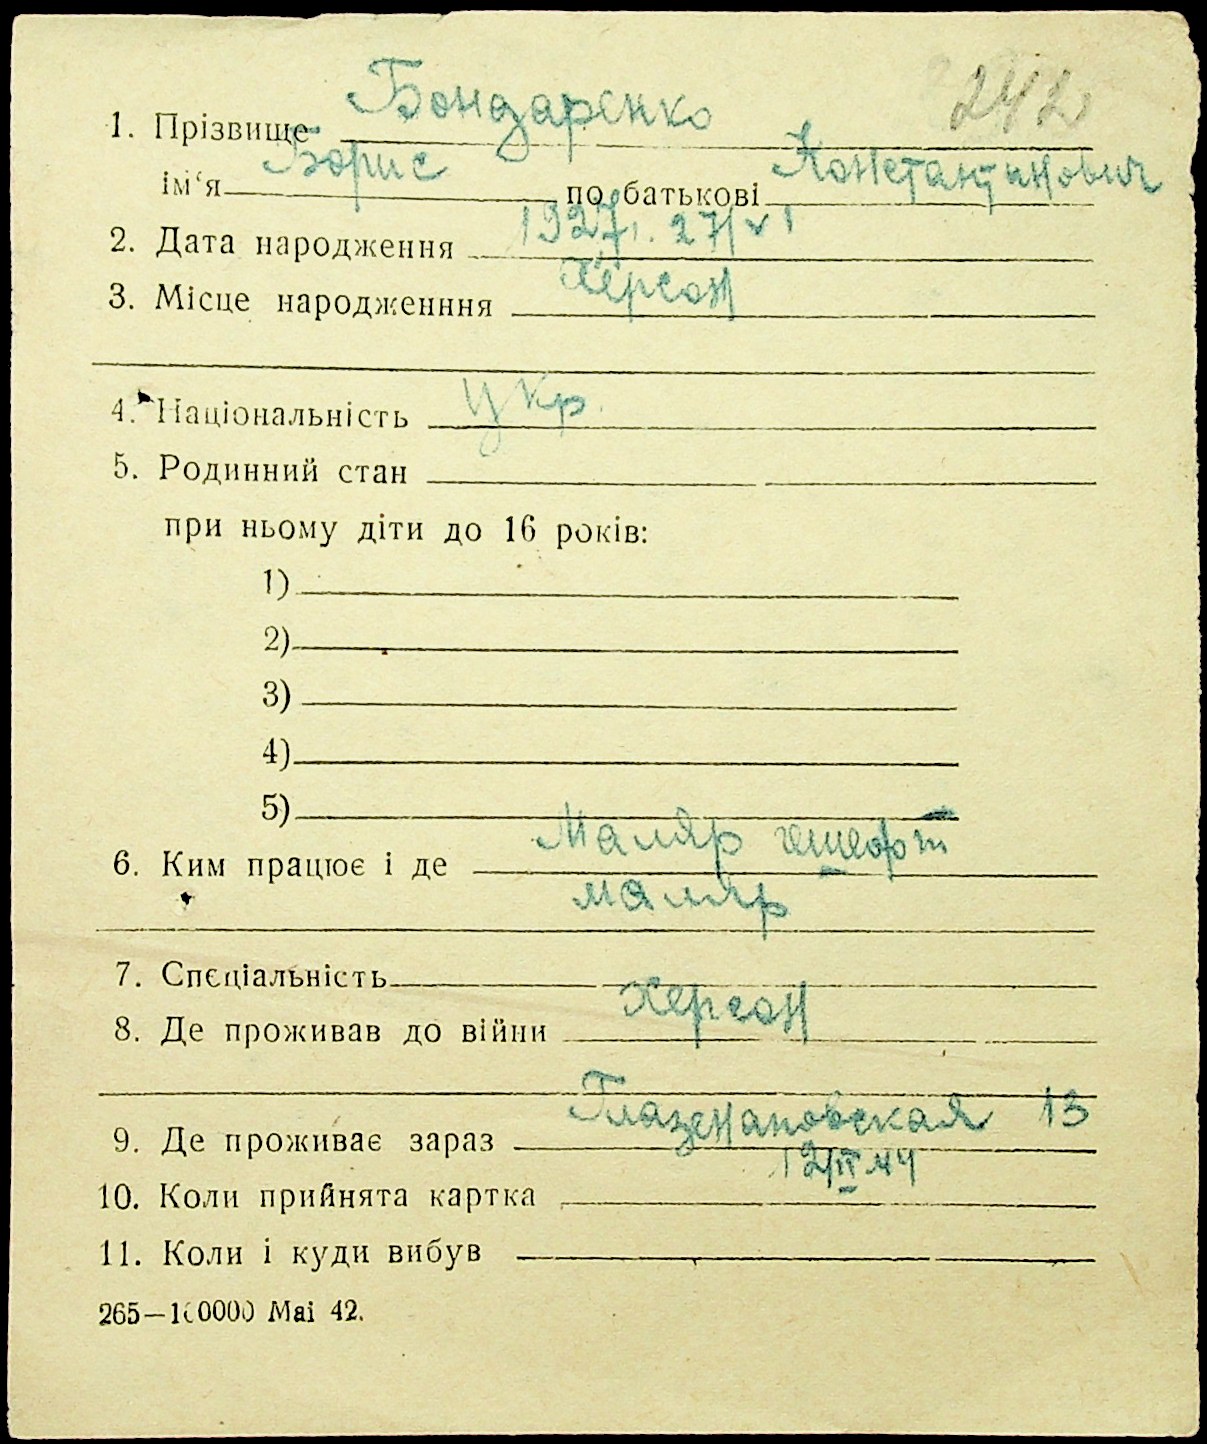 242
1. Прізвище Бондаренко
ім‘я Борис по батькові Константинович
2. Дата народження 1927. 27/VI
3. Місце народженння Херсон
4. Національність Укр.
5. Родинний стан
при ньому діти до 16 років:
1)
2)
3)
4)
5)
6. Ким працює і де Маляр
маляр
7. Спеціальність
8. Де проживав до війни Херсон
9. Де проживає зараз Глазенаповская 13
10. Коли прийнята картка 12/II 44
11. Коли і куди вибув
265—100000 Mai 42.